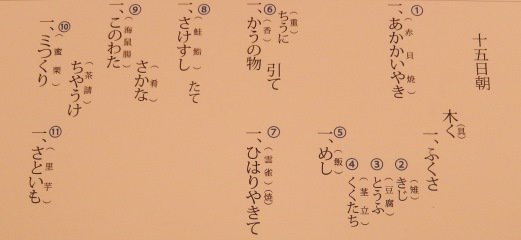 十五日朝
①
一、あかかいやき
（赤貝焼）
一、ふくさ
木く（具）
②きじ（雉）
③とうふ（豆腐）
④くくたち（茎立）
⑤
一、めし（飯）
ちうに（重）引て
⑥
一、かうの物（香）
⑦
一、ひはりやきて
（雲雀）（焼）
⑧
一、さけすし（鮭鮨）たて
さかな（肴）
⑨
一、このわた（海鼠腸）
ちやうけ（茶請）
⑩
一、ミつくり（蜜栗）
⑪
一、さといも（里芋）